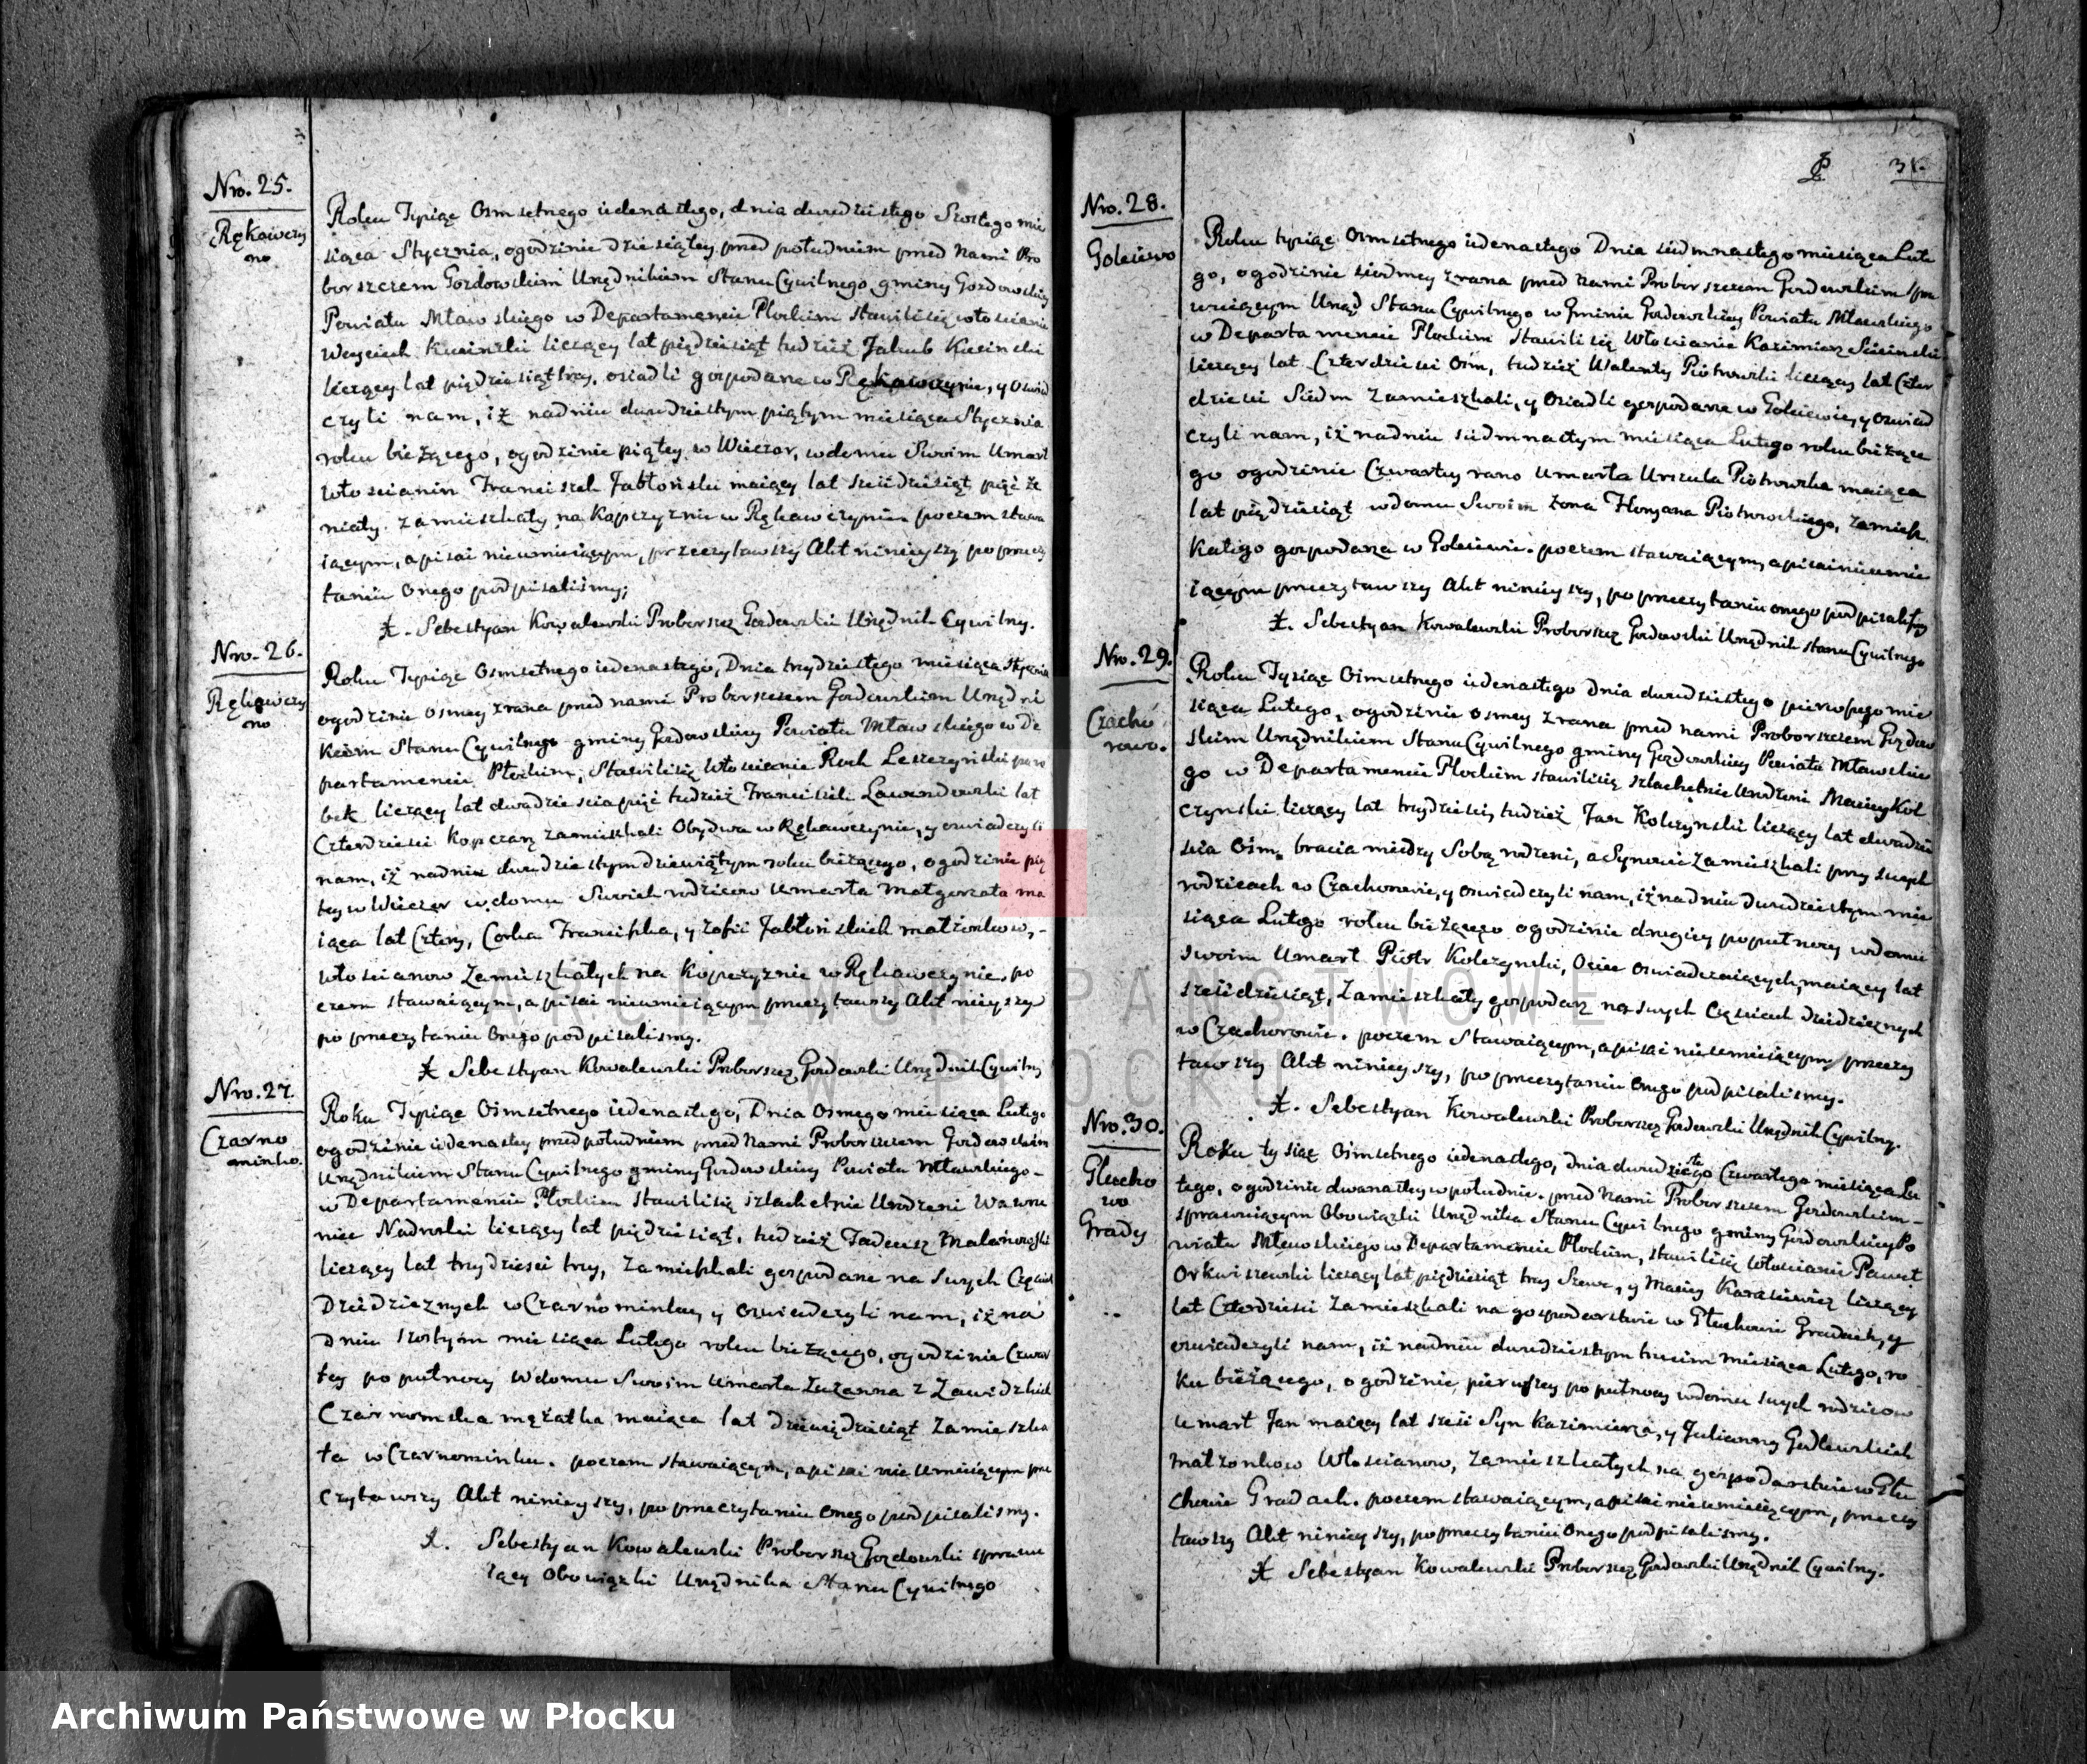 Nro. 25.
Rękawczy
no
Roku Tysiąc Osmsetnego iedenastego, dnia dwudziestego Szostego mie
siąca Stycznia, ogodzinie dziesiątey przed południem przed Nami Pro
borszczem Gozdowskim Urzędnikiem Stanu Cywilnego gminy Gozdowskiey
Powiatu Mławskiego w Departamencie Płockim stawili się włoscianie
Woyciech Kucinski liczący lat piędziesiąt tudzież Jakub Kucinski
liczący lat piędziesiąt trzy, osiadli gospodarze w Rękawczynie, y oswiad
czyli nam, iż nadniu dwudziestym piątym miesiąca Stycznia
roku bieżącego, ogodzinie piątey w Wieczor, wdomu Swoim Umarł
Włoscianin Franciszek Jabłoński maiący lat sześdziesiąt pięć że
niaty. zamieszkały na Kopczyznie w Rękawczynie. poczem stawa
iącym, apisać nieumieiącym, przeczytawszy Akt ninieyszy po przeczy
taniu Onego podpisaliśmy;
X. Sebestyan Kowalewski Proborszcz Gozdowski Urzędnik Cywilny.
Nro. 26.
Rękawczy
no
Roku Tysiąc Osmsetnego iedenastego, Dnia trzydziestego miesiąca Stycznia
ogodzinie osmey zrana przed nami Proborszczem Gozdowskim Urzędni
kiem Stanu Cywilnego gminy Gozdowskiey Powiatu Mławskiego w De
partamencie Płockim, Stawili się Włoscianie Roch Leszczyński paro
bek liczący lat dwadziescia pięć tudzież Franciszek Lewandowski lat
Czterdziesci kopczarz zamieszkali Obydwa w Rękawczynie, y oswiadczyli
nam, iż nadniu dwudziestym dziewiątym roku bieżącego, ogodzinie pią
tey w Wieczor wdomu Swoich rodzicow umarła Małgorzata ma
iąca lat Cztery, Corka Franciszka, y Zofii Jabłońskich małżonkow,
Włoscianow zamieszkałych na Kopczyznie w Rękawczynie. po
czem stawaiącym, a pisać nieumieiącym przeczytawszy Akt nieyszy
po przeczytaniu Onego podpisalismy.
X Sebestyan Kowalewski Proborszcz Gozdowski Urzędnik Cywilny
Nro. 27.
Czarno
minko.
Roku Tysiąc Osmsetnego iedenastego, Dnia Osmego miesiąca Lutego
ogodzinie iedenastey przed południem przed Nami Proborszczem Gozdowskim
Urzędnikiem Stanu Cywilnego gminy Gozdowskiey Powiatu Mławskiego
w Departamencie Płockim stawili się szlachetnie Urodzeni Wawrzy
niec Nadrolski liczący lat pięдziesiąt, tudzież Tadeusz Malanowski
liczący lat trzydziesci trzy, zamieszkali gospodarze na Swych Częściach
Dziedzicznych w Czarnominku, y oswiadczyli nam, iż na
dniu szostym miesiąca Lutego roku bieżącego, ogodzinie Czwar
tey po pułnocy wdomu Swoim umarła Zuzanna z Zawidzkich
Czarnomska mężatka maiąca lat dziewiędziesiąt zamieszka
ła w Czarnominku. poczem stawaiącym, apisać nie Umieiącym prze
czytawszy Akt ninieyszy, po przeczytaniu onego podpisalismy.
X. Sebestyan Kowalewski Proborszcz Gozdowski sprawu
iący Obowiązki Urzędnika Stanu Cywilnego
31.
Nro. 28.
Golejewo
Roku tysiąc Osmsetnego iedenastego Dnia siedmnastego miesiąca Lute
go, ogodzinie siodmey zrana przed Nami Proborszczem Gozdowskim spra
wuiącym Urząd Stanu Cywilnego w Gminie Gozdowskiey Powiatu Mławskiego
w Departamencie Płockim stawili się Włoscianie Kazimierz Scicinski
liczący lat Czterdziesci Osm, tudzież Walenty Piotrowski liczący lat Czter
dziesci Siedm zamieszkali, y osiadli gospodarze w Golejewie, y oswiad
czyli nam, iż nadniu siedmnastym miesiąca Lutego roku bieżące
go ogodzinie Czwartey rano umarła Urszula Piotrowska maiąca
lat pięдziesiąt wdomu Swoim żona Floryana Piotrowskiego, zamiesz
kałego gospodarza w Golejewie. poczem stawaiącym, apisać nieumie
iącym przeczytawszy Akt ninieyszy, po przeczytaniu onego podpisalismy
X. Sebestyan Kowalewski Proborszcz Gozdowski Urzędnik stanu Cywilnego
Nro. 29.
Czacho
rowo.
Roku Tysiąc Osmsetnego iedenastego Dnia dwudziestego pierwszego mie
siąca Lutego, ogodzinie osmey zrana przed nami Proborszczem Gozdow
skim Urzędnikiem Stanu Cywilnego gminy Gozdowskiey Powiatu Mławskie
go w Departamencie Płockim stawili się szlachetnie Urodzeni Maciey Kol
czynski liczący lat trzydziesci, tudzież Jan Kolczynski liczący lat dwadzie
scia Osm, bracia miedzy Sobą rodzeni, a Synowie zamieszkali przy swych
rodzicach w Czachorowie, y oswiadczyli nam, iż nadniu dwudziestym mie
siąca Lutego roku bieżącego ogodzinie drugiey popułnocy wdomu
swoim umarł Piotr Kolczynski, Ociec oswiadczaiących, maiący lat
sześdziesiąt, zamieszkały gospodarz na swych Częsciach dziedzicznych
w Czachorowie. poczem Stawaiącym, apisać nieumieiącym, przeczy
tawszy Akt ninieyszy, po przeczytaniu onego podpisalismy.
X. Sebestyan Kowalewski Proborszcz Gozdowski Urzędnik Cywilny.
Nro. 30.
Głucho
wo
Grady
Roku tysiąc Osmsetnego iedenastego, dnia dwudziestego Czwartego miesiąca Lu
tego, ogodzinie dwunastey wpołudnie. przed Nami Proborszczem Gozdowskim
sprawuiącym Obowiązki Urzędnika Stanu Cywilnego gminy Gozdowskiey Po
wiatu Mławskiego w Departamencie Płockim, stawili się Włoscianie Paweł
Orkwiszewski liczący lat pięдziesiąt trzy Szewc, y Maciey Karasiewicz liczący
lat Czterdziesci zamieszkali na gospodarstwie w Głuchowie Gradach, y
oswiadczyli nam, iż nadniu dwudziestym trzecim miesiąca Lutego, ro
ku bieżącego, ogodzinie pierwszey po pułnocy wdomu swych rodzicow
umarł Jan maiący lat sześć Syn Kazimierza, y Julianny Godlewskich
małżonkow Włoscianow, zamieszkałych na gospodarstwie w Głu
chowie Gradach. poczem stawaiącym, apisać nieumieiącym, przeczy
tawszy Akt ninieyszy, po przeczytaniu Onego podpisalismy.
X Sebestyan Kowalewski Proborszcz Gozdowski Urzędnik Cywilny.
ARCHIWUM PAŃSTWOWE
W PŁOCKU
Archiwum Państwowe w Płocku